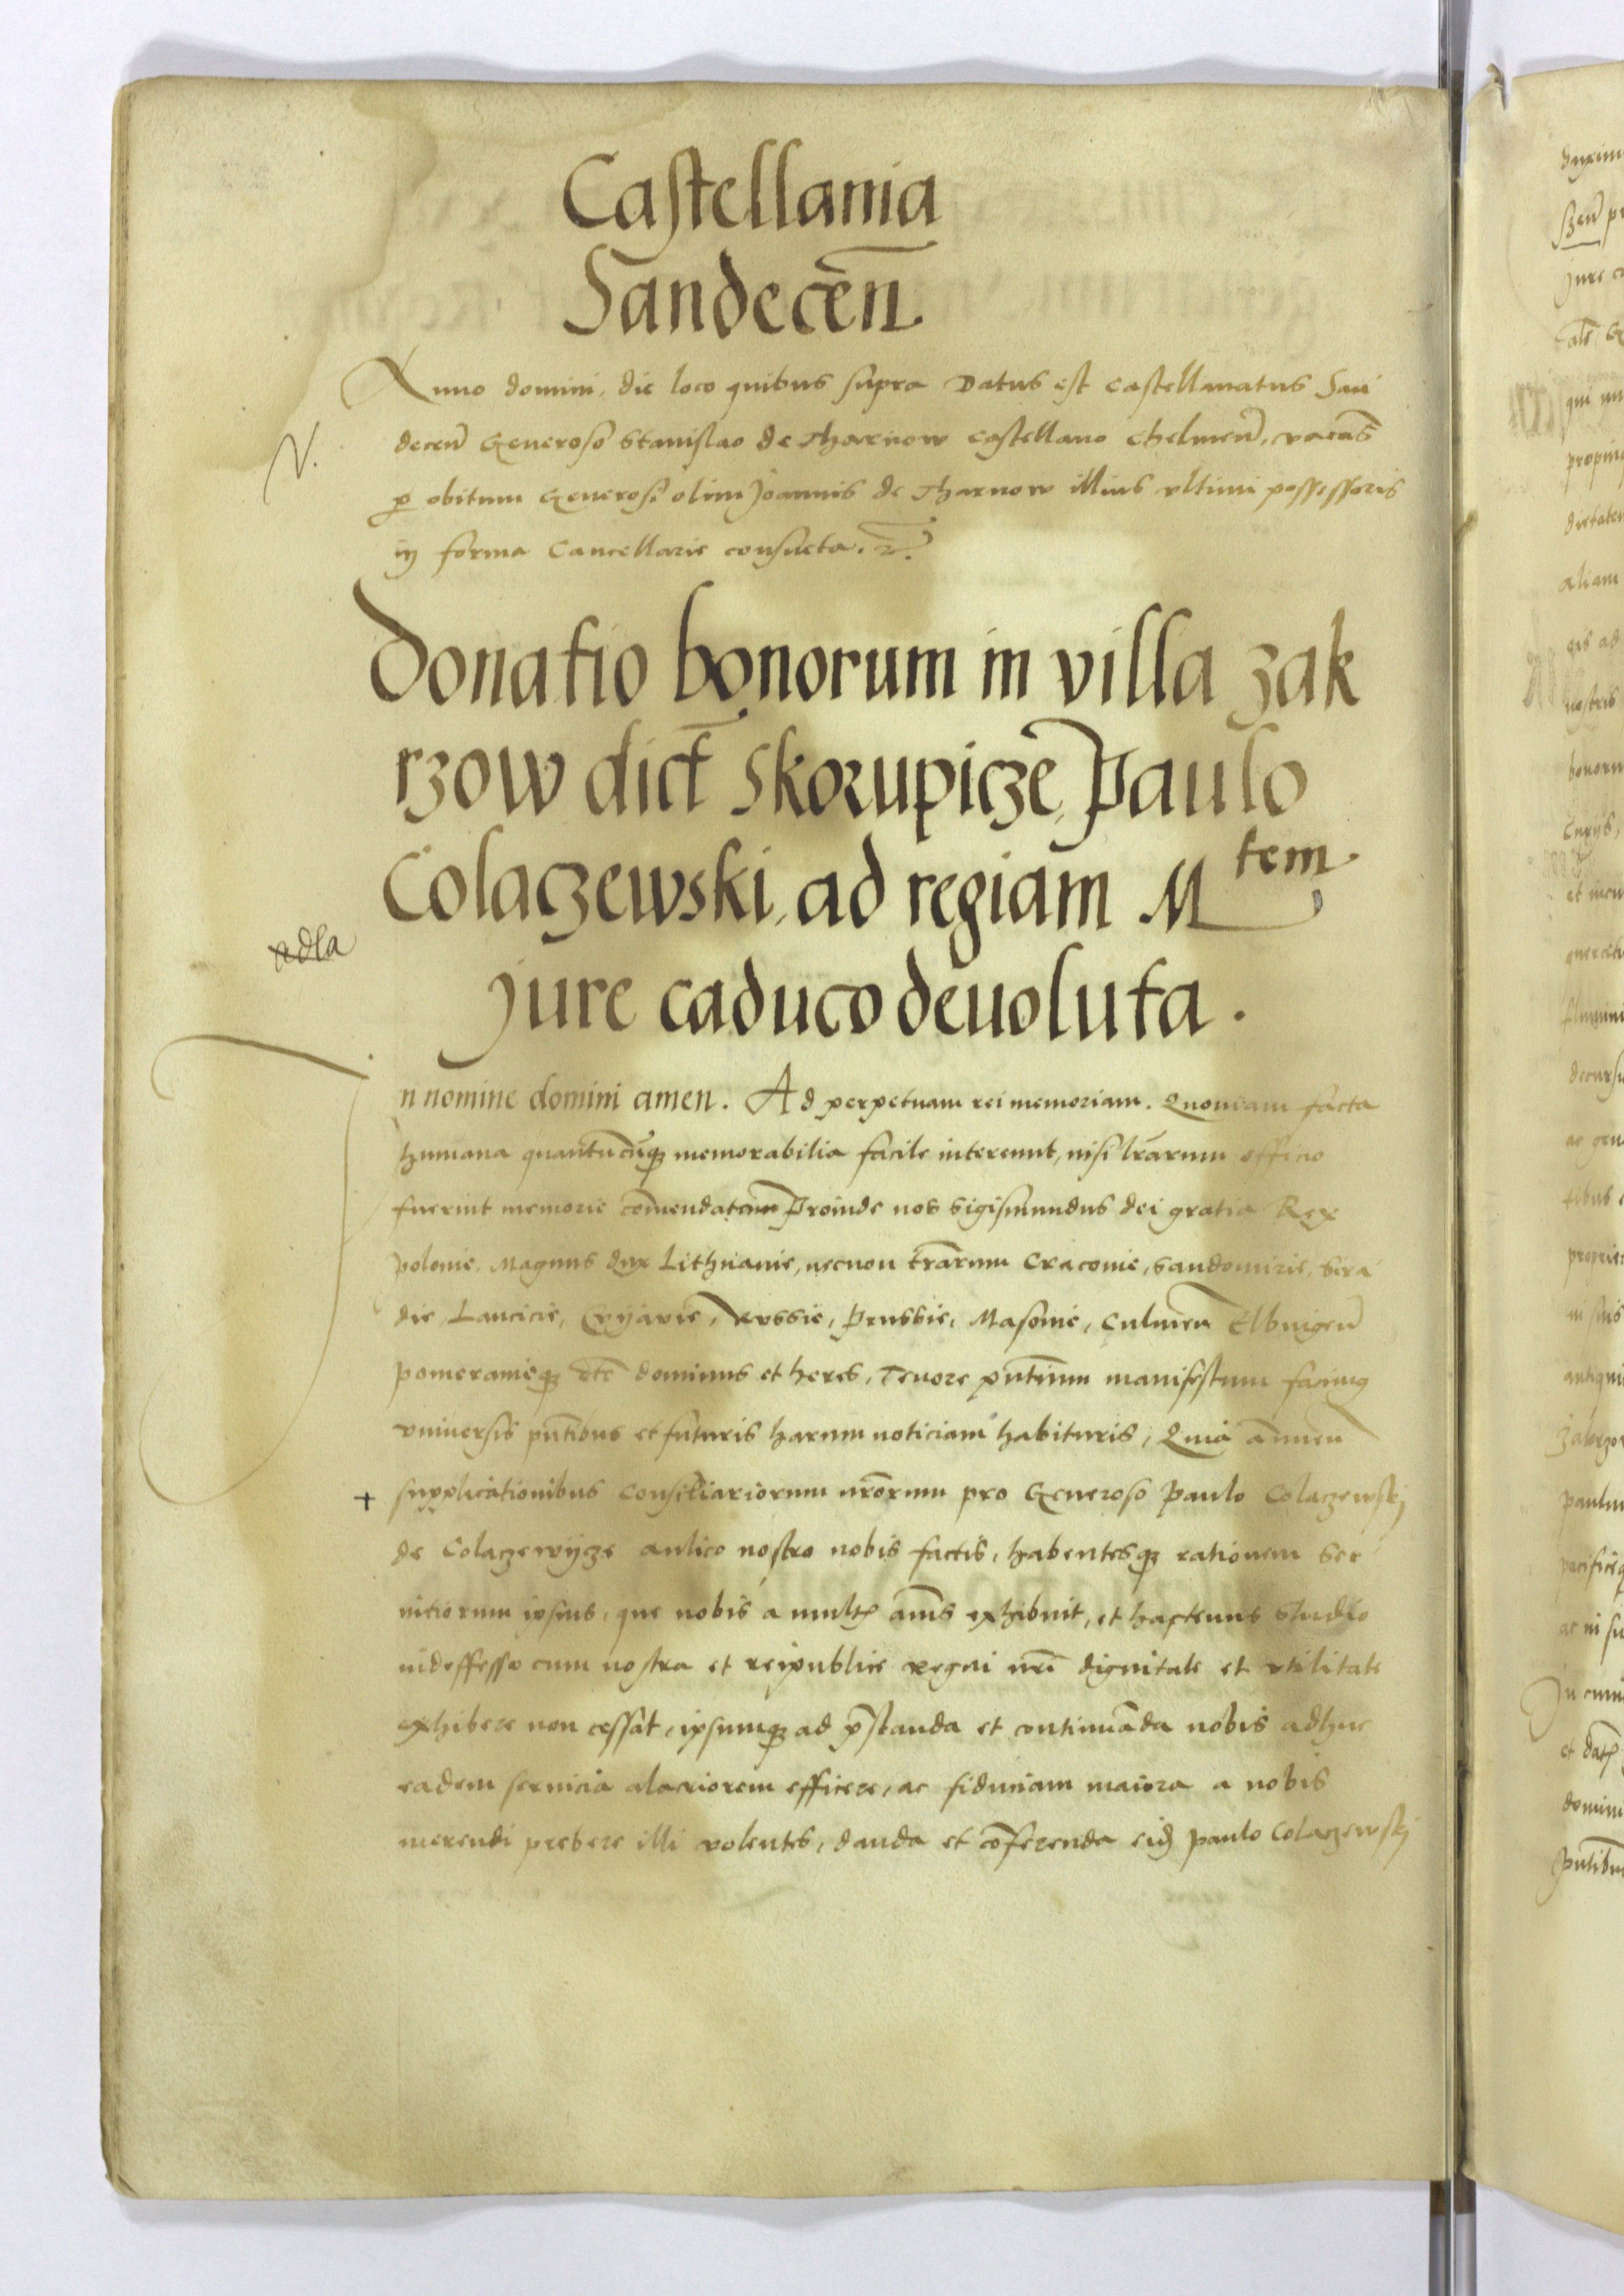 Castellania
Sandeceñ
Anno domini, die loco quibus supra Datus est Castellanatus San
N.
deceñ Generoso Stanislao de Tharnow Castellano Chelmeñ, vacañs
p obitum Generosi olim Joannis de Tharnow illius vltimi possessoris
in forma Cancellarie consueta.
Donatio bonorum in villa zak
rzow dict Skorupicze, Paulo
Colaczewski, ad regiam M tem
adla
jure caduco deuoluta.
In nomine domini amen. Ad perpetuam rei memoriam. Quoniam facta
humana quantūcūqꝫ memorabilia facile intereunt, nisi lr̄arum officio
fuerint memorie com̄endata Proinde nos Sigismundus dei gratia Rex
polonie. Magnus dux Lithuanie, necnon tr̄arum Cracouie, Sandomirie, Sira
die, Lancicie, Cuyauie, Russie, Prussie, Masouie, Culmeñ Elbingeñ
pomeranieqꝫ etc̄ dominus et heres, Tenore pn̄tium manifestum facimus
vniuersis pn̄tibus et futuris harum noticiam habituris, Quia añnueñ
+ supplicationibus Consiliariorum nr̄orum pro Generoso Paulo Colaczewskj
de Colaczewycze aulico nostro nobis factis, habentesqꝫ rationem ser
uitiorum ipsius, que nobis a mult annis exhibuit, et hactenus studio
indeffesso cum nostra et reipublice regni nr̄i dignitate et vtilitate
exhibere non cessat, ipsumqꝫ ad p̄standa et continuāda nobis adhuc
eadem seruicia alacriorem efficere, ac fiduciam maiora a nobis
merendi prebere illi volentes, danda et cōferenda eid Paulo Colaczewskj